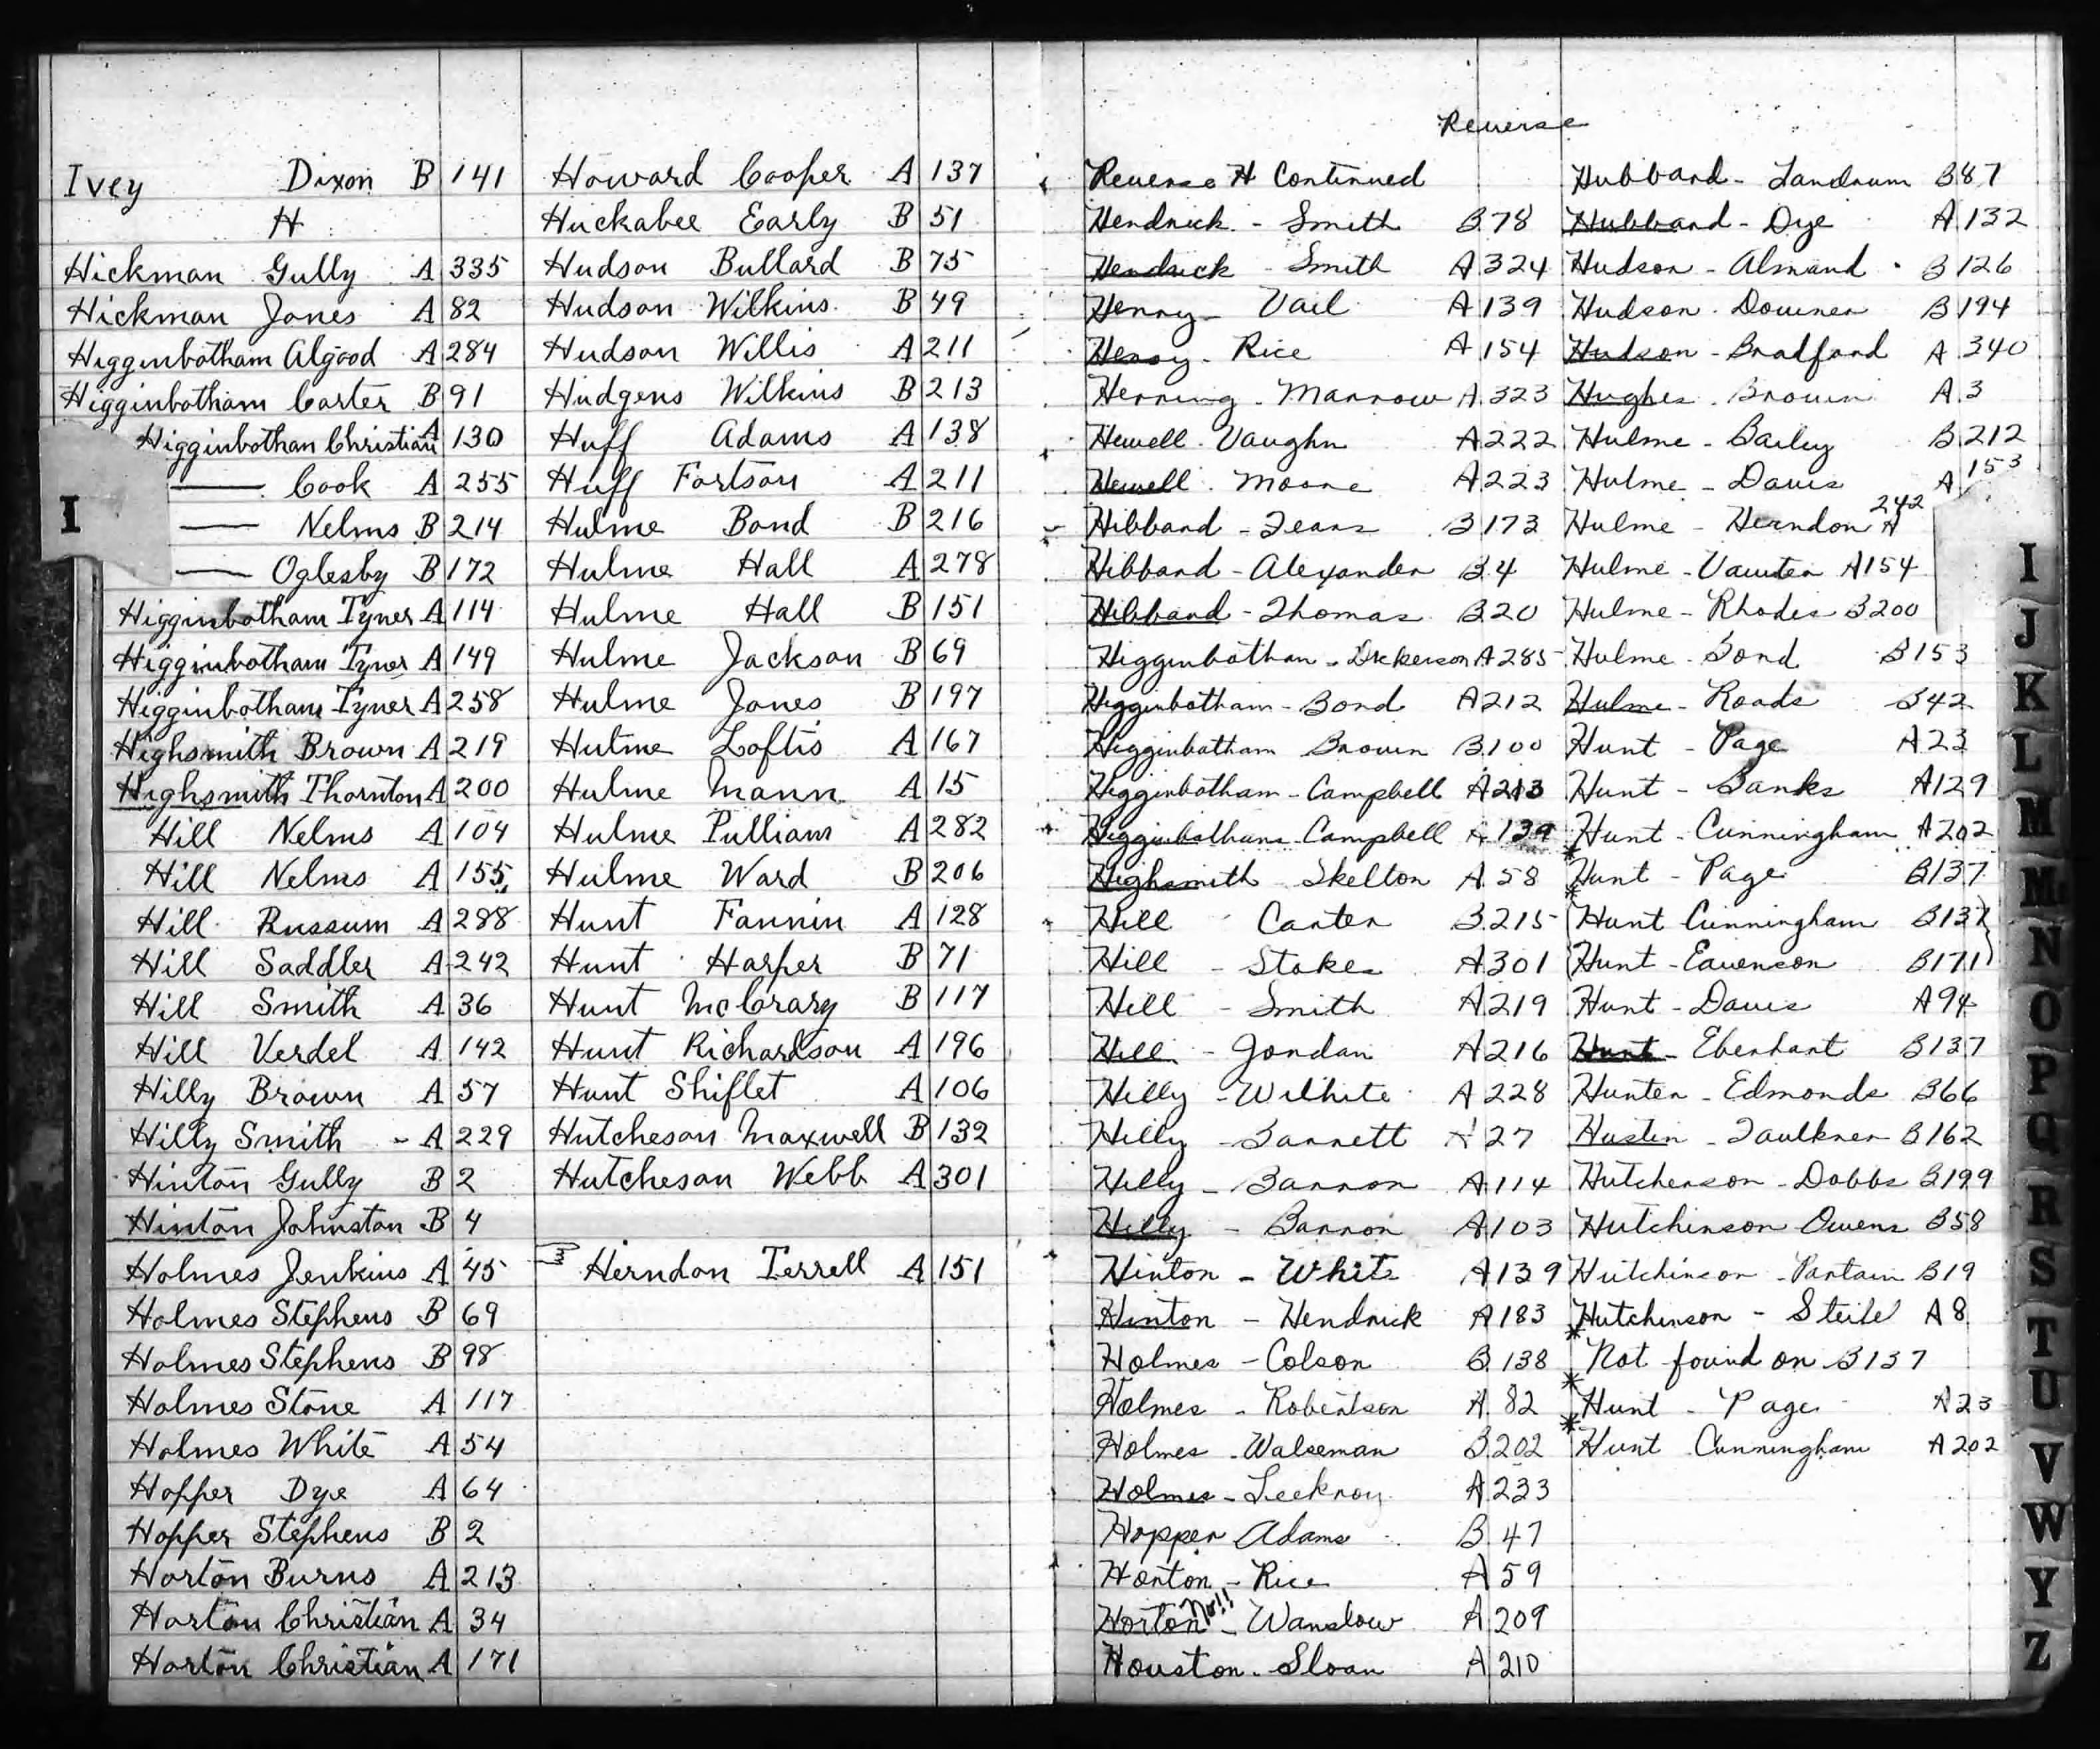 Ivey Dixon B 141
H
Hickman Gully A 335
Hickman Jones A 82
Higginbotham Algood A 284
Higginbotham Carter B 91
Higginbothan Christian A 130
—— Cook A 255
—— Nelms B 214
—— Oglesby B 172
Higginbotham Tyner A 114
Higginbotham Tyner A 149
Higginbotham Tyner A 258
Highsmith Brown A 219
Highsmith Thornton A 200
Hill Nelms A 104
Hill Nelms A 155
Hill Russum A 288
Hill Saddler A 242
Hill Smith A 36
Hill Verdel A 142
Hilly Brown A 57
Hilly Smith - A 229
Hinton Gully B 2
Hinton Johnston B 4
Holmes Jenkins A 45
Holmes Stephens B 69
Holmes Stephens B 98
Holmes Stone A 117
Holmes White A 54
Hopper Dye A 64
Hopper Stephens B 2
Horton Burns A 213
Horton Christian A 34
Horton Christian A 171
I
Howard Cooper A 137
Huckabee Early B 51
Hudson Bullard B 75
Hudson Wilkins B 49
Hudson Willis A 211
Hudgens Wilkins B 213
Huff Adams A 138
Huff Fortson A 211
Hulme Bond B 216
Hulme Hall A 278
Hulme Hall B 151
Hulme Jackson B 69
Hulme Jones B 197
Hulme Loftis A 167
Hulme Mann A 15
Hulme Pulliam A 282
Hulme Ward B 206
Hunt Fannin A 128
Hunt Harper B 71
Hunt McCrary B 117
Hunt Richardson A 196
Hunt Shiflet A 106
Hutcheson Maxwell B 132
Hutcheson Webb A 301
Herndon Terrell A 151
Reverse
Reverse H Continued
Hendrick - Smith B 78
Hendrick - Smith A 324
Henry - Vail A 139
Henry - Rice A 154
Herring - Marrow A 323
Hewell - Vaughn A 222
Hewell - Moore A 223
Hibbard - Teans B 173
Hibbard - Alexander B 4
Hibbard - Thomas B 20
Higginbothan - Dickerson A 285
Higginbotham - Bond A 212
Higginbotham Brown B 100
Higginbotham - Campbell A 213
Higginbotham - Campbell A 139
Highsmith - Skelton A 58
Hill Carter B 215
Hill - Stokes A 301
Hill - Smith A 219
Hill - Jordan A 216
Hilly - Wilhite A 228
Hilly - Barrett A 27
Hilly - Barron A 114
Hilly - Barron A 103
Hinton - White A 139
Hinton - Hendrick A 183
Holmes - Colson B 138
Holmes - Robertson A 82
Holmes - Walseman B 202
Holmes - Leckroy A 233
Hopper Adams B 47
Horton - Rice A 59
Horton No!! - Wanslow A 209
Houston - Sloan A 210
Hubbard - Landrum B 87
Hubbard - Dye A 132
Hudson - Almand B 126
Hudson - Downer B 194
Hudson - Bradford A 340
Hughes - Brown A 3
Hulme - Bailey B 212
Hulme - Davis A 153
Hulme - Herndon A 242
Hulme - Vawter A 154
Hulme - Rhodes B 200
Hulme - Bond B 153
Hulme - Roads B 42
Hunt - Page A 23
Hunt - Banks A 129
Hunt - Cunningham A 202
* Hunt - Page B 137
* Hunt Cunningham B 137
Hunt - Eavenson B 171
Hunt - Davis A 94
Hunt - Eberhart B 137
Hunter - Edmonds B 66
Husten - Faulkner B 162
Hutcherson - Dobbs B 199
Hutchinson Owens B 58
Hutchinson - Partain B 19
Hutchinson - Steifel A 8
* Not found on B 137
* Hunt - Page A 23
* Hunt Cunningham A 202
I
J
K
L
M
Mc
N
O
P
Q
R
S
T
U
V
W
Y
Z